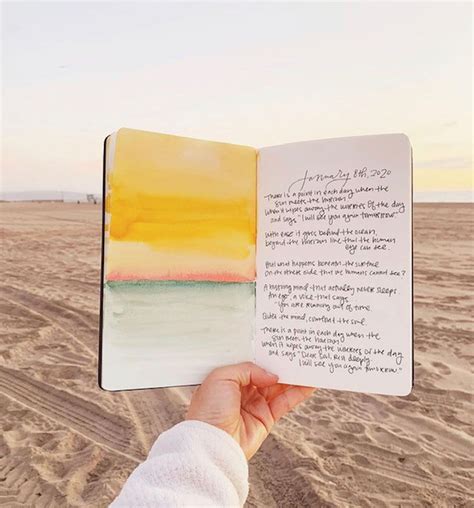 January 8th, 2020
There is a point in each day when the
sun meets the horizon
When it wipes away the worries of the day
and says "I will see you again tomorrow."
With ease it goes behind the ocean,
beyond the horizon line that the human
eye can see.
But what happens beneath the surface
On the other side that we humans cannot see?
A buzzing mind that actually never sleeps
An ego, a voice that says
"you are running out of time.
Quiet the mind, comfort the soul.
There is a point in each day when the
sun meets the horizon
When it wipes away the worries of the day
and says "Dear Soul, Rest deeply.
I will see you again tomorrow."